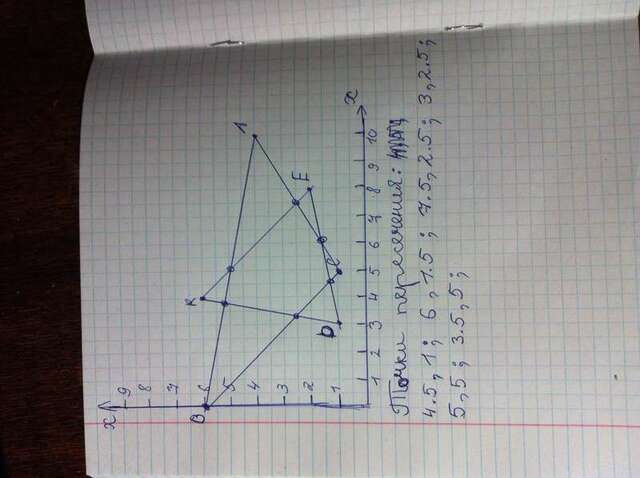 x
9
8
7
B 6
K
5
A
4
3
2
E
1
D
C
1 2 3 4 5 6 7 8 9 10
x
Точки пересечения:
4.5, 1; 6, 1.5; 7.5, 2.5; 3, 2.5;
5, 5; 3.5, 5;